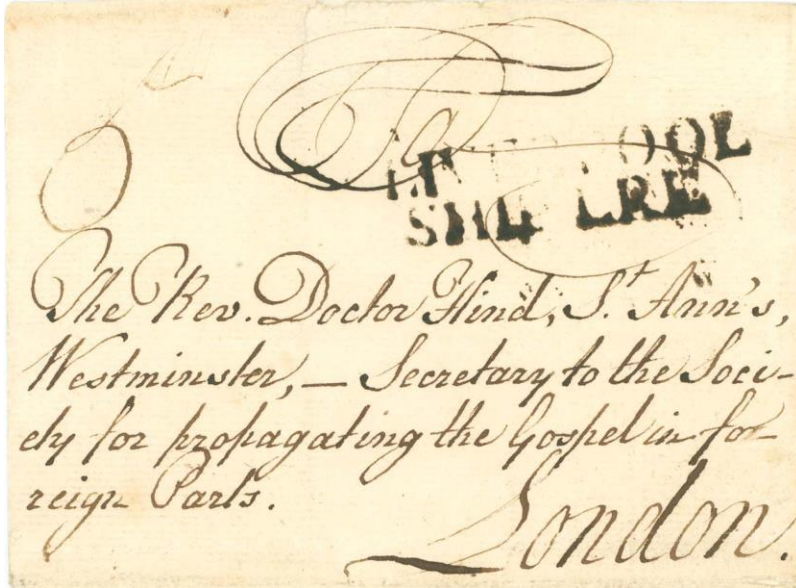 LIVERPOOL
SHIP LRE
The Rev. Doctor Hind, St. Ann's,
Westminster, — Secretary to the Soci-
ety for propagating the Gospel in fo-
reign Parts.
London.